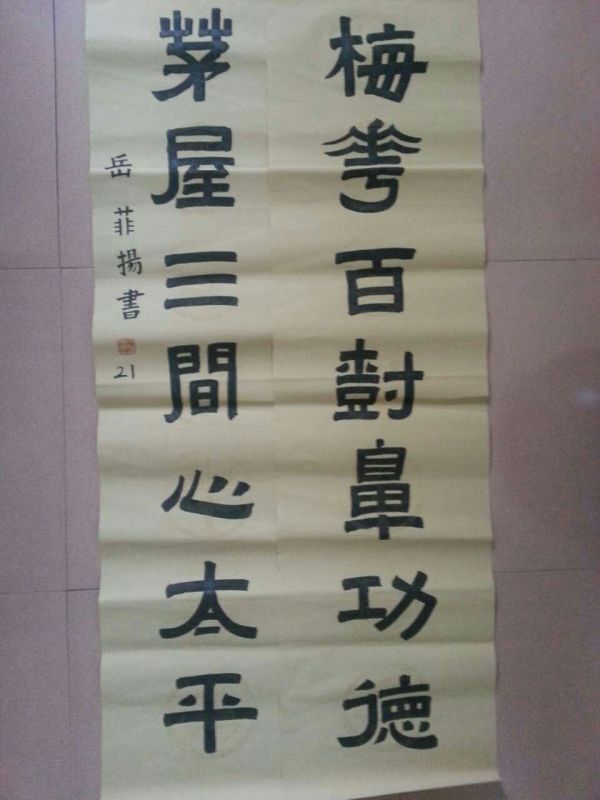 梅花百樹鼻功德
茅屋三間心太平
岳菲揚書
21